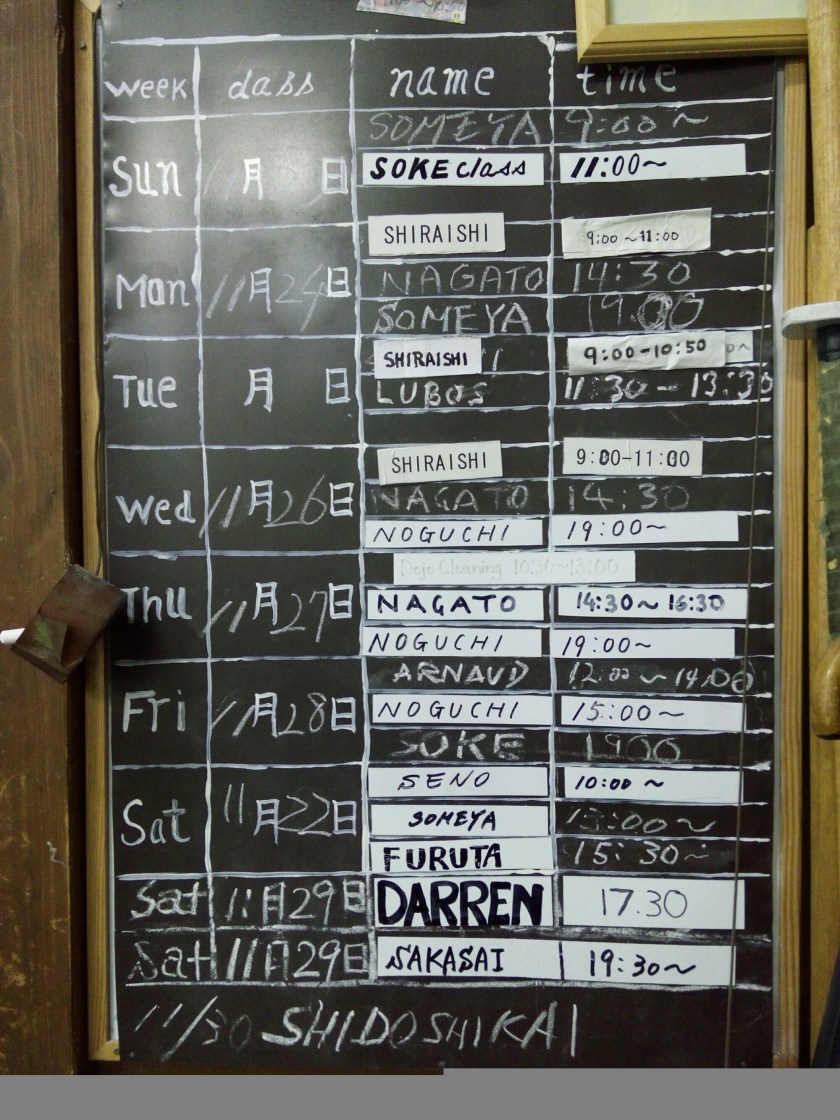 week class name time
SOMEYA 9:00~
Sun 11月 日 SOKE class 11:00~
SHIRAISHI 9:00~11:00
Mon 11月24日 NAGATO 14:30
SOMEYA 19.00
SHIRAISHI 9:00-10:50
Tue 月 日 LUBOS 11:30-13:30
SHIRAISHI 9:00-11:00
Wed 11月26日 NAGATO 14:30
NOGUCHI 19:00~
Dojo Cleaning 10:30~13:00
Thu 11月27日 NAGATO 14:30~16:30
NOGUCHI 19:00~
ARNAUD 12:00~14:00
Fri 11月28日 NOGUCHI 15:00~
SOKE 1900
SENO 10:00~
Sat 11月22日 SOMEYA 13:00~
FURUTA 15:30~
Sat 11月29日 DARREN 17.30
Sat 11月29日 SAKASAI 19:30~
11/30 SHIDOSHIKAI